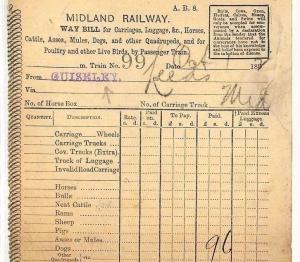 A. B. 8.
MIDLAND RAILWAY.
WAY BILL for Carriages, Luggage, &c., Horses,
Cattle, Asses, Mules, Dogs, and other Quadrupeds, and for
Poultry and other Live Birds, by Passenger Train.
m. Train No. 99 Leeds 189
From GUISELEY.
Mid
No. of Horse Box No. of Carriage Truck
QUANTITY. DESCRIPTION. Rate. Paid on. To Pay. Paid. Paid Excess Luggage.
s. d. s. d. £ s. d. £ s. d. £ s. d.
Carriage Wheels
Carriage Trucks
Cov. Trucks (Extra)
Truck of Luggage
Invalid Road Carriage
Horses
Bulls
Neat Cattle
Rams
Sheep
Pigs
Asses or Mules
Dogs
Other
Quadrupeds
96